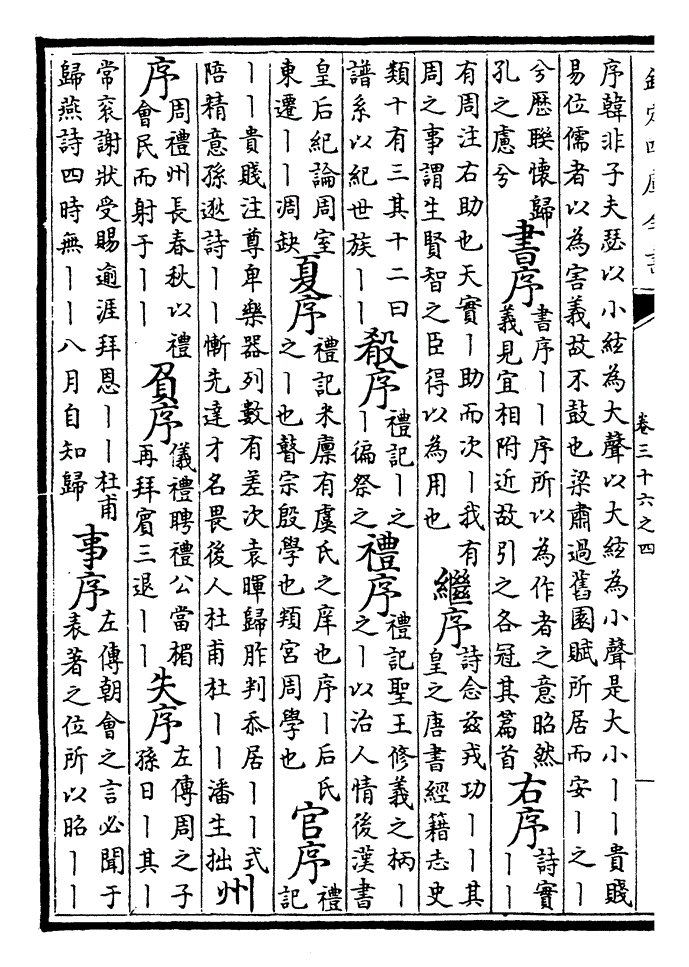 欽定四庫全書
卷三十六之四
序韓非子夫瑟以小絃為大聲以大絃為小聲是大小丨丨貴賤
易位儒者以為害義故不鼓也梁肅過舊園賦所居而安丨之丨
兮歷聯懷歸
孔之慮兮
書序
書序丨丨序所以為作者之意昭然
義見宜相附近故引之各冠其篇首
右序
詩實
丨丨
有周注右助也天實丨助而次丨我有
周之事謂生賢智之臣得以為用也
繼序
詩念茲戎功丨丨其
皇之唐書經籍志史
類十有三其十二曰
譜系以紀世族丨丨
殽序
禮記丨之
丨徧祭之
禮序
禮記聖王修義之柄丨
之丨以治人情後漢書
皇后紀論周室
東遷丨丨凋缺
夏序
禮記米廩有虞氏之庠也序丨后氏
之丨也瞽宗殷學也頖宮周學也
官序
禮
記
丨丨貴賤注尊卑樂器列數有差次袁暉歸胙判忝居丨丨式
陪精意孫逖詩丨丨慚先達才名畏後人杜甫杜丨丨潘生拙
州
序
周禮州長春秋以禮
會民而射于丨丨
負序
儀禮聘禮公當楣
再拜賓三退丨丨
失序
左傳周之子
孫日丨其丨
常袞謝狀受賜逾涯拜恩丨丨杜甫
歸燕詩四時無丨丨八月自知歸
事序
左傳朝會之言必聞于
表著之位所以昭丨丨